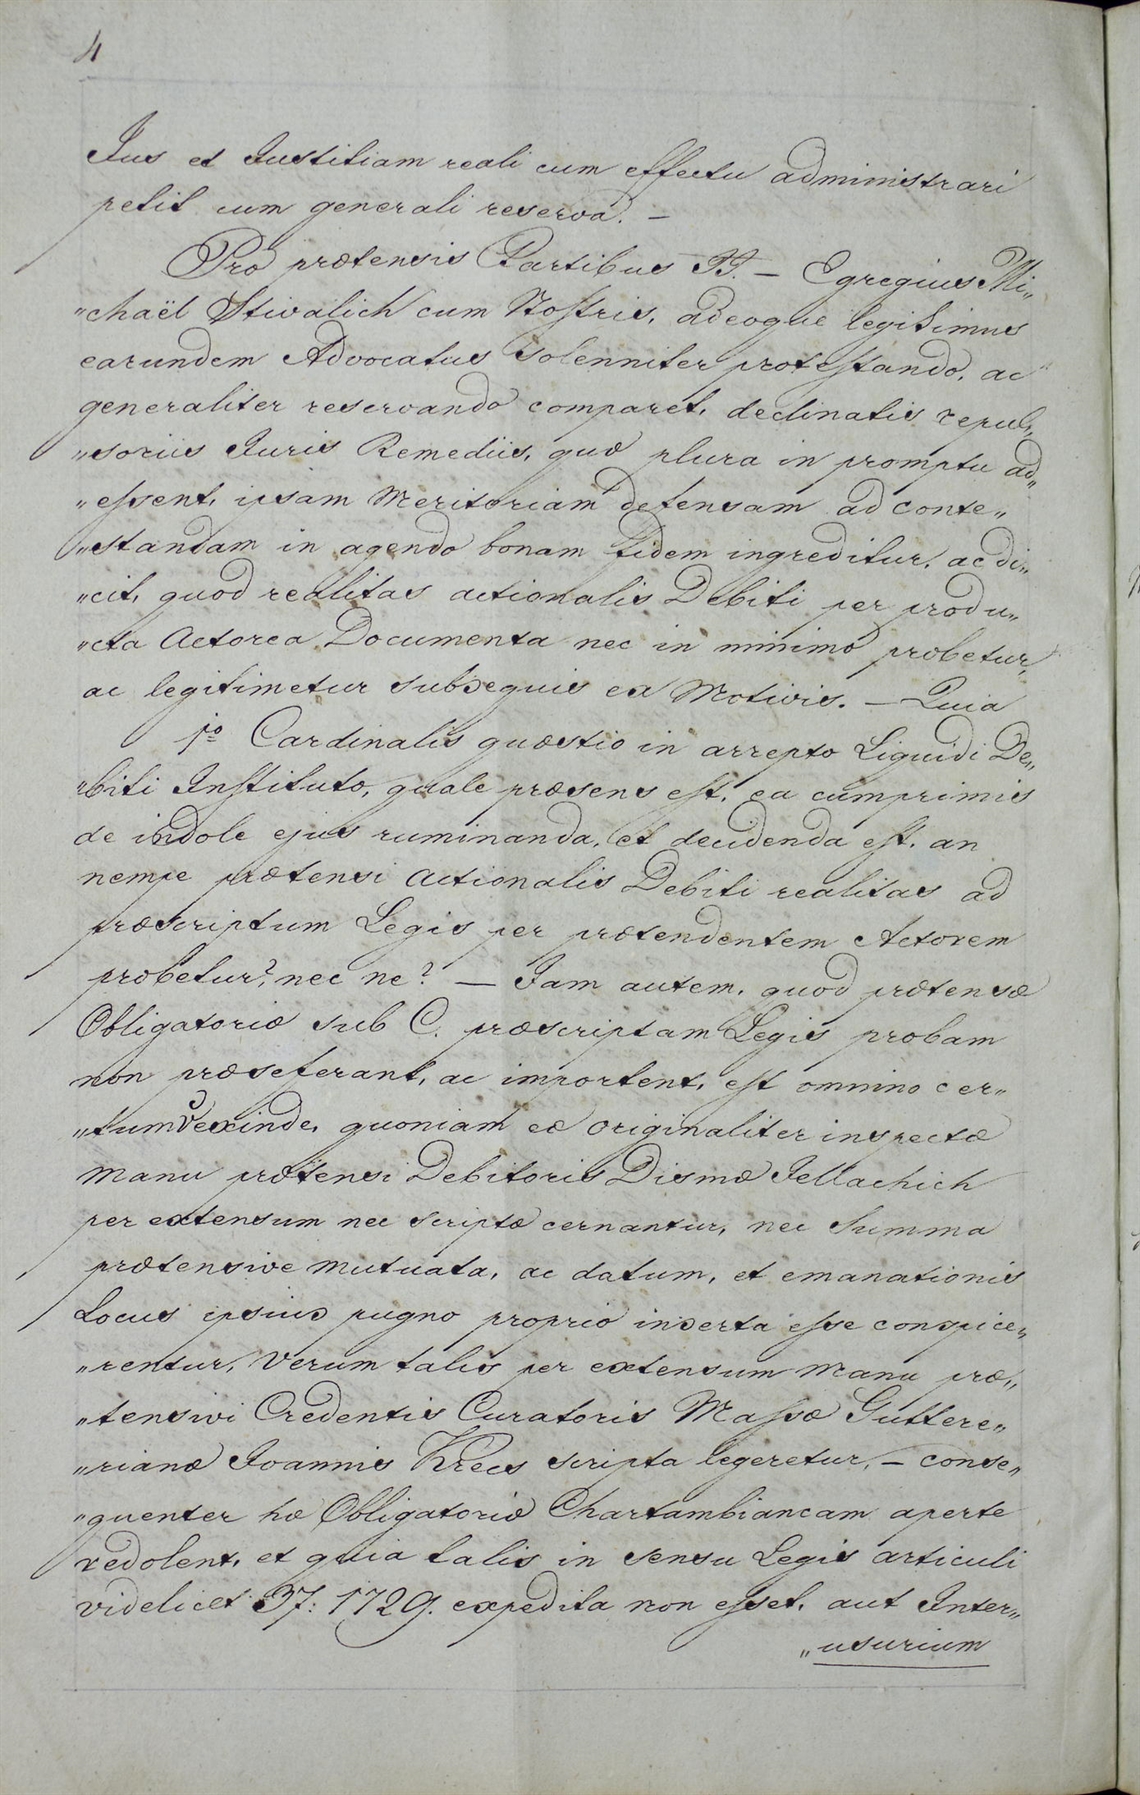 4
Jus et Justitiam reali cum effectu administrari
petit cum generali reserva. –
Pro prætensis Partibus II. – Egregius Mi„
„chaël Stivalich cum Nostris, adeoque legitimus
earundem Advocatus solenniter protestando, ac
generaliter reservando comparet, declinatis repul„
„soriis Juris Remediis, quæ plura in promptu ad„
„essent, ipsam Meritoriam defensam ad conte„
„standam in agendo bonam fidem ingreditur, ac di„
„cit, quod realitas actionalis Debiti per produ„
„cta Actorea Documenta nec in minimo probetur,
ac legitimetur subsequis ex Motivis. – Quia
1º Cardinalis quæstio in arrepto Liquidi De„
„biti Instituto, quale præsens est, ea cumprimis
de indole ejus ruminanda, et decidenda est, an
nempe prætensi actionalis Debiti realitas ad
præscriptum Legis per prætendentem Actorem
probetur? nec ne? – Jam autem, quod prætensæ
Obligatoriæ sub C. præscriptam Legis probam
non præseferant, ac importent, est omnino cer„
„tum exinde, quoniam eæ originaliter inspectæ
manu prætensi Debitoris Dismæ Jellachich
per extensum nec scriptæ cernantur, nec Summa
prætensive mutuata, ac datum, et emanationis
Locus ipsius pugno proprio inserta esse conspice„
„rentur, verum talis per extensum manu præ„
„tensivi Credentis Curatoris Massæ Guttere„
„rianæ Joannis Krecs scripta legeretur, – conse„
„quenter hæ Obligatoriæ Chartambiancam aperte
redolent, et quia talis in sensu Legis articuli
videlicet 37: 1729. expedita non esset, aut Inter„
„usurium